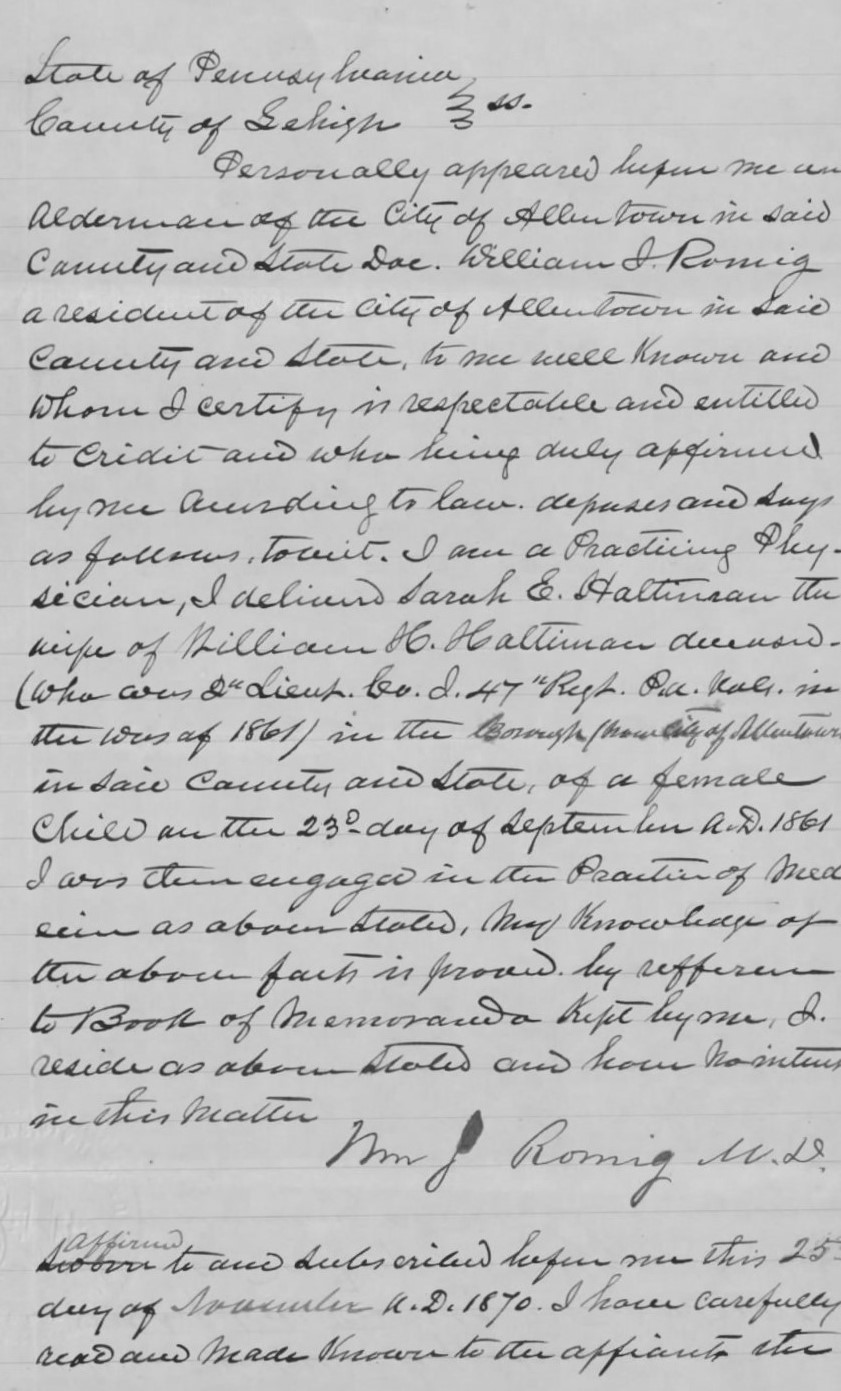 State of Pennsylvania
County of Lehigh } ss.
Personally appeared before me an
Alderman of the City of Allentown in said
County and State Doc. William J. Romig
a resident of the City of Allentown in said
County and State, to me well Known and
whom I certify is respectable and entitled
to credit and who being duly affirmed
by me according to law. deposes and says
as follows, towit. I am a Practicing Phy-
sician, I delivered Sarah E. Haltiman the
wife of William H. Haltiman deceased.
(who was 2nd Lieut. Co. I. 47th Regt. Pa. Vols. in
the war of 1861) in the Borough (now City of Allentown
in said County and State, of a female
Child on the 23d day of September A.D. 1861
I was then engaged in the Practice of Med
ecin as above stated, My Knowledge of
the above facts is proved. by refference
to Book of Memoranda Kept by me, I.
reside as above stated and have no interest
in this Matter
Wm J Romig M.D.
affirmed
Sworn to and subscribed before me this 25
day of November A.D. 1870. I have carefully
read and made Known to the affiants the